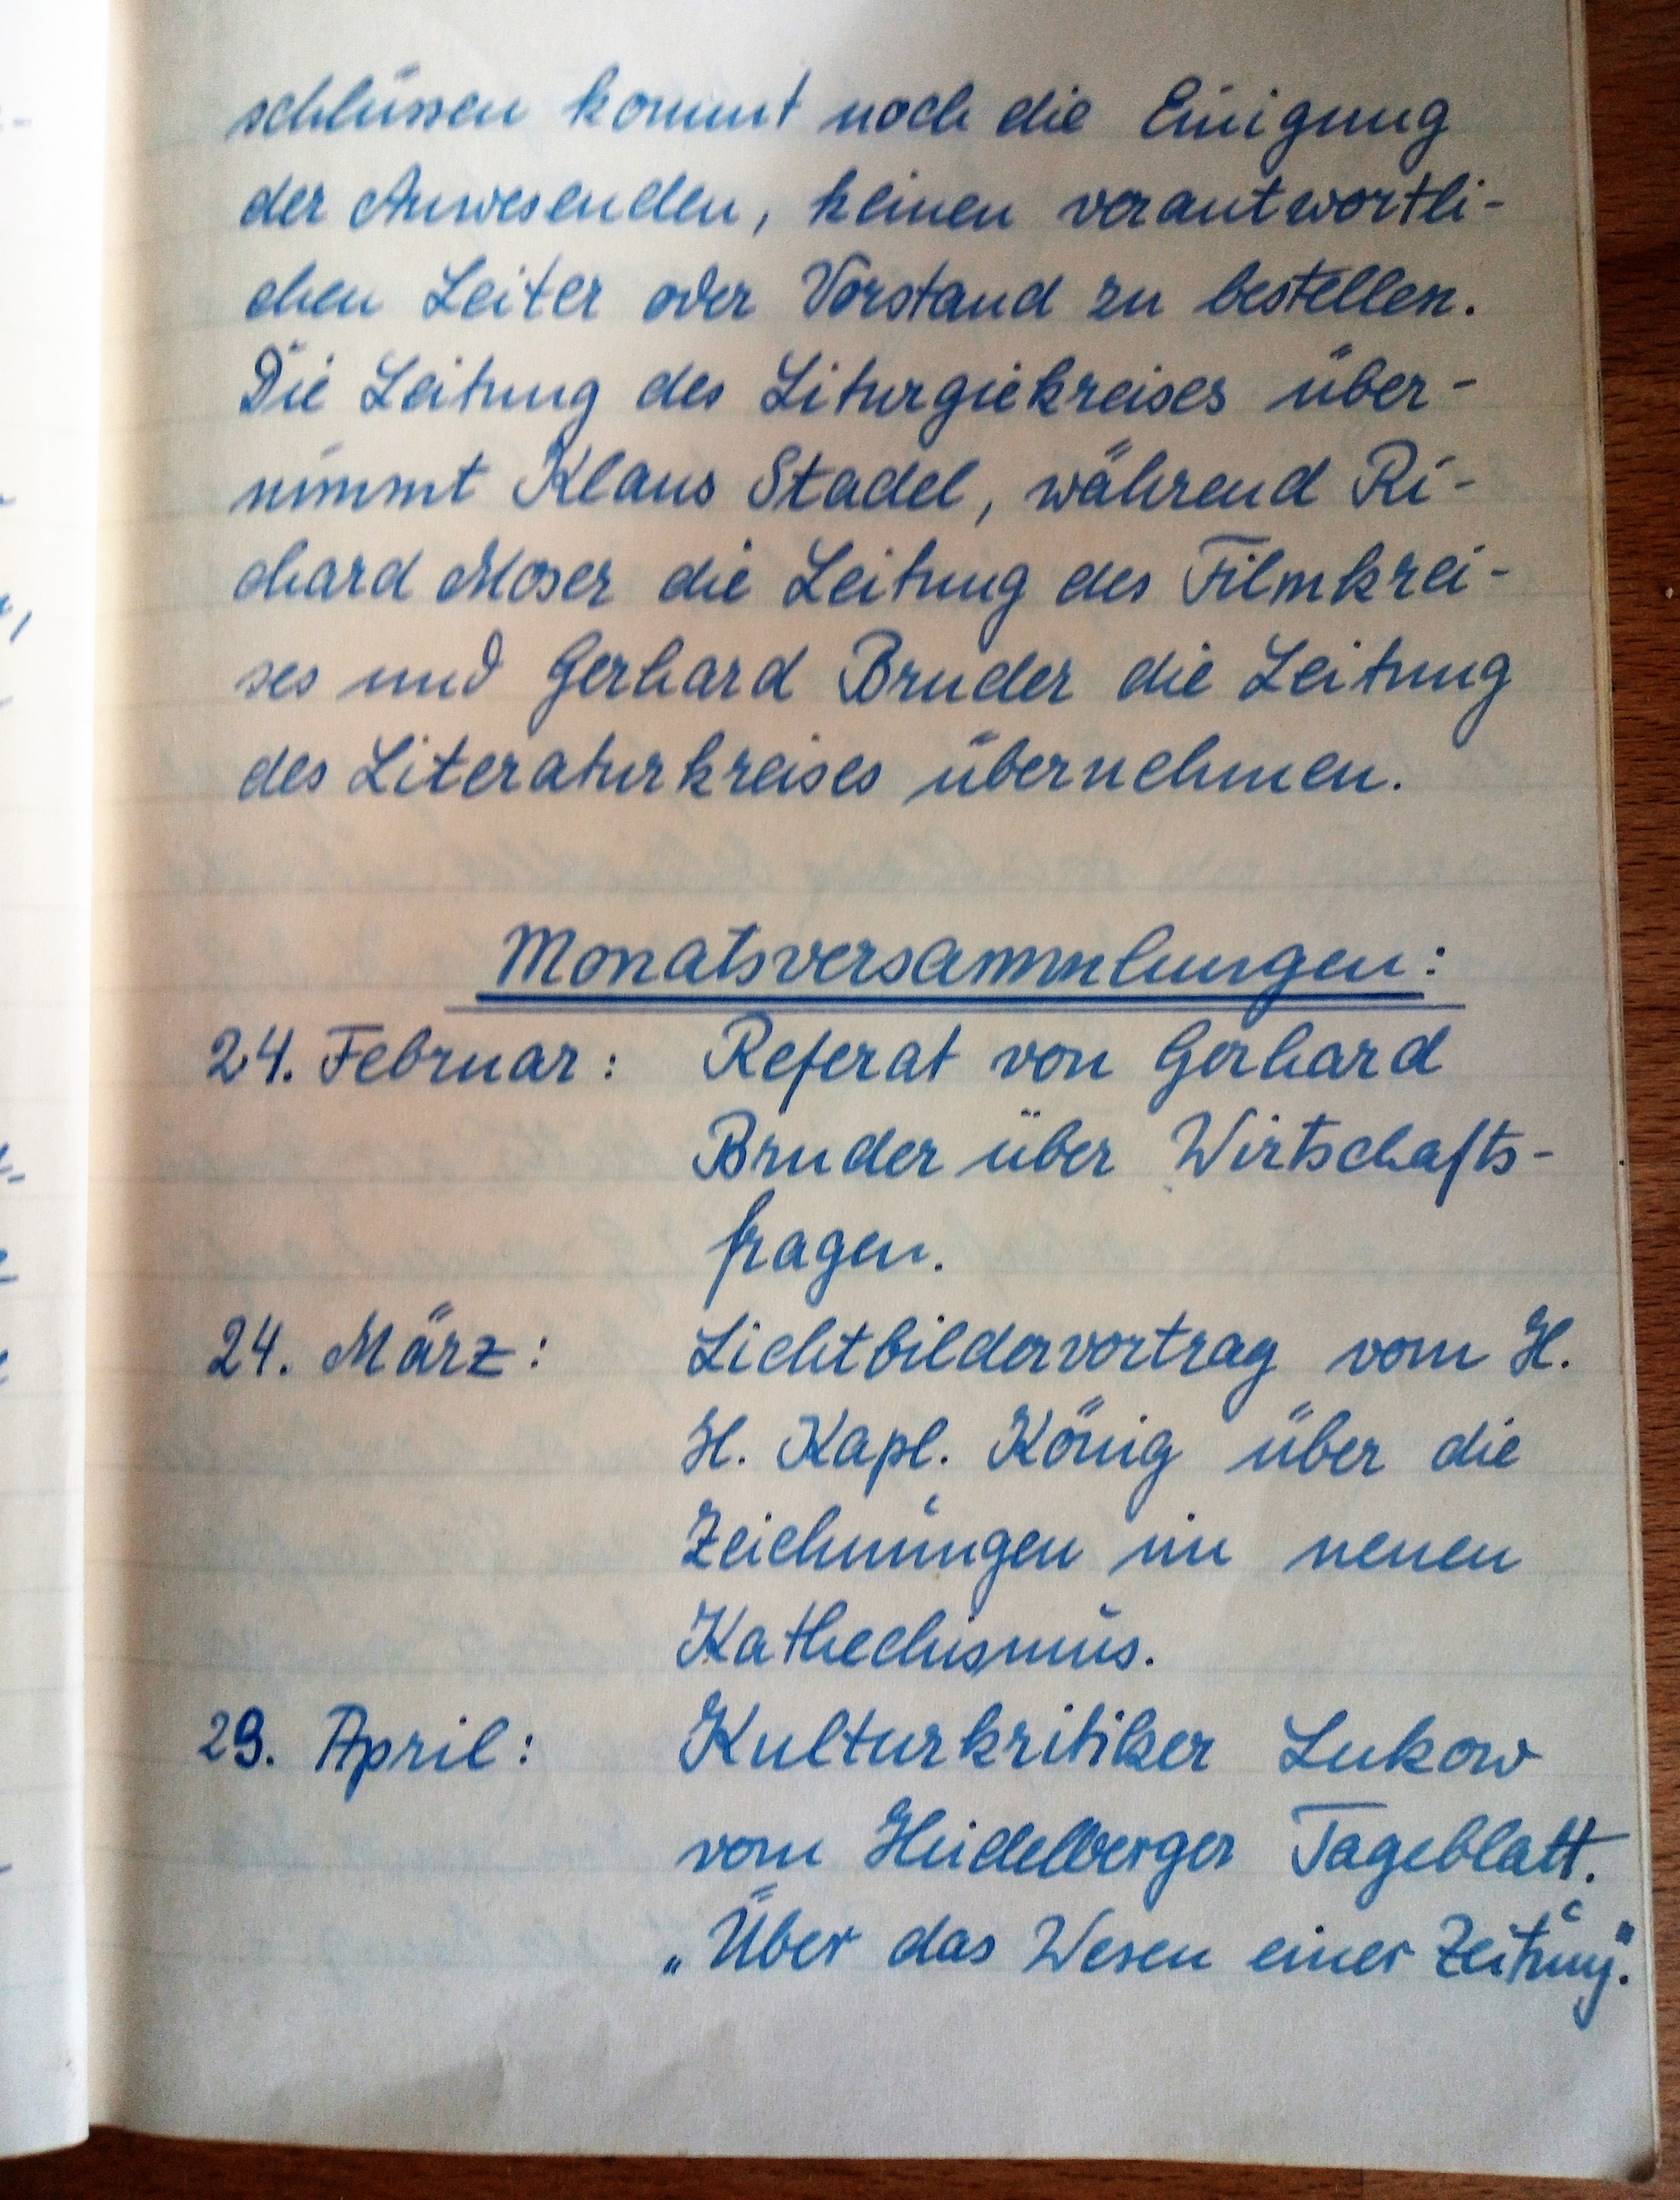 schlüssen kommt noch die Einigung
der Anwesenden, keinen verantwortli-
chen Leiter oder Vorstand zu bestellen.
Die Leitung des Liturgiekreises über-
nimmt Klaus Stadel, während Ri-
chard Moser die Leitung des Filmkrei-
ses und Gerhard Bruder die Leitung
des Literaturkreises übernehmen.
Monatsversammlungen:
24. Februar: Referat von Gerhard
Bruder über Wirtschafts-
fragen.
24. März: Lichtbildervortrag vom H.
H. Kapl. König über die
Zeichnungen im neuen
Kathechismus.
29. April: Kulturkritiker Lukow
vom Heidelberger Tageblatt.
„Über das Wesen einer Zeitung".